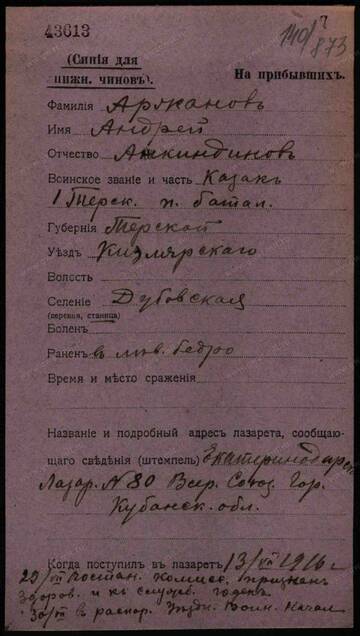 43613
140/873
(Синія для
нижн. чиновъ).
На прибывшихъ.
Фамилія Аркановъ
Имя Андрей
Отчество
Воинское званіе и часть Казакъ
1 Терск. п. батал.
Губернія Терской
Уѣздъ Кизлярскаго
Волость
Селеніе Дубовская
(деревня, станица)
Боленъ
Раненъ в лѣв. бедро
Время и мѣсто сраженія
Названіе и подробный адресъ лазарета, сообщаю-
щаго свѣдѣнія (штемпель) Екатеринодарск
Лазар. N 80 Всер. Союз. Гор.
Кубанск. обл.
Когда поступил въ лазаретъ 13/VII 1916 г
29/VII Постан. Комисс. признан
здоров. и къ служб. годенъ
30/VII в распор. Уѣздн. Воин. Начал